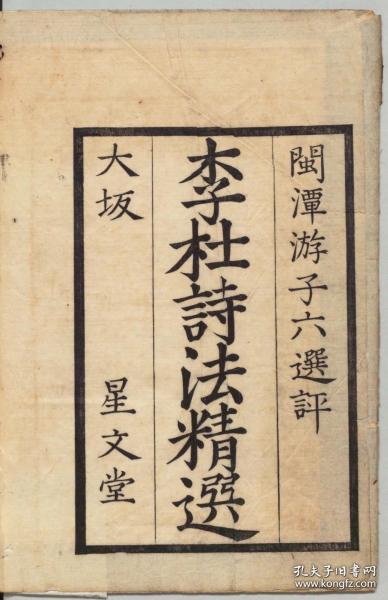 閩潭游子六選評
李杜詩法精選
大坂 星文堂
孔夫子旧书网
www.kongfz.com